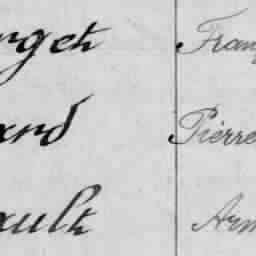 nget Franç
ard Pierre
ault Arm